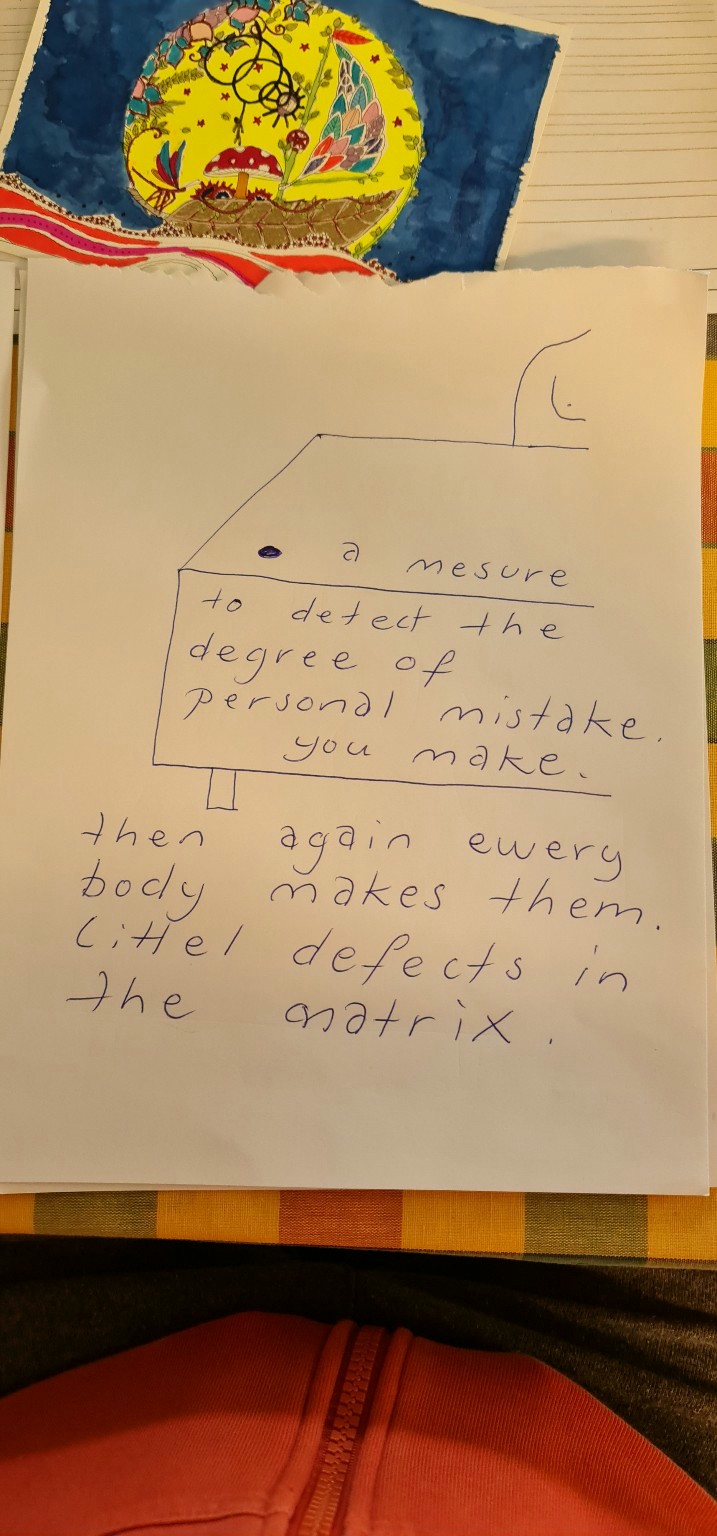 a mesure
to detect the
degree of
personal mistake.
you make.
then again ewery
body makes them.
Littel defects in
the matrix.